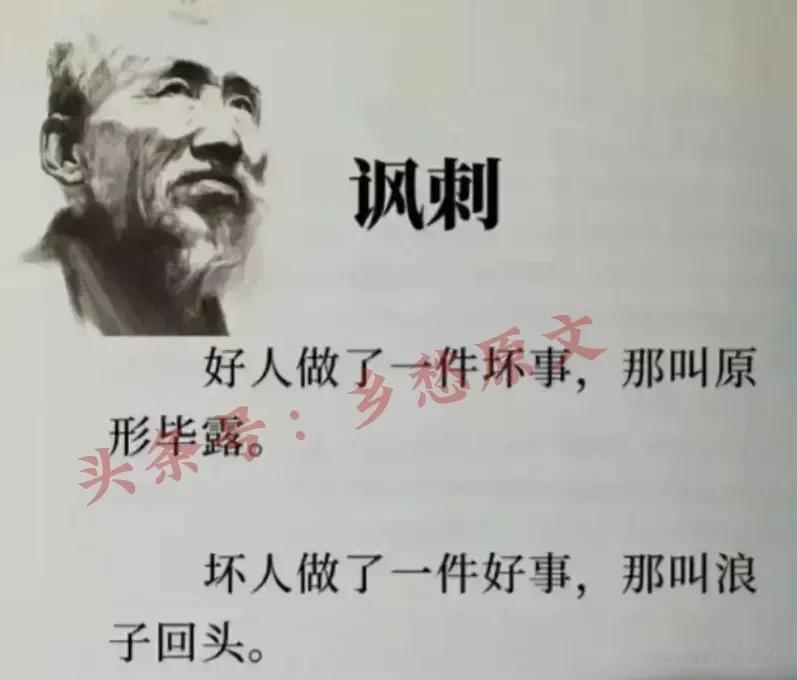 讽刺
好人做了一件坏事，那叫原
形毕露。
头条号：乡愁原文
坏人做了一件好事，那叫浪
子回头。